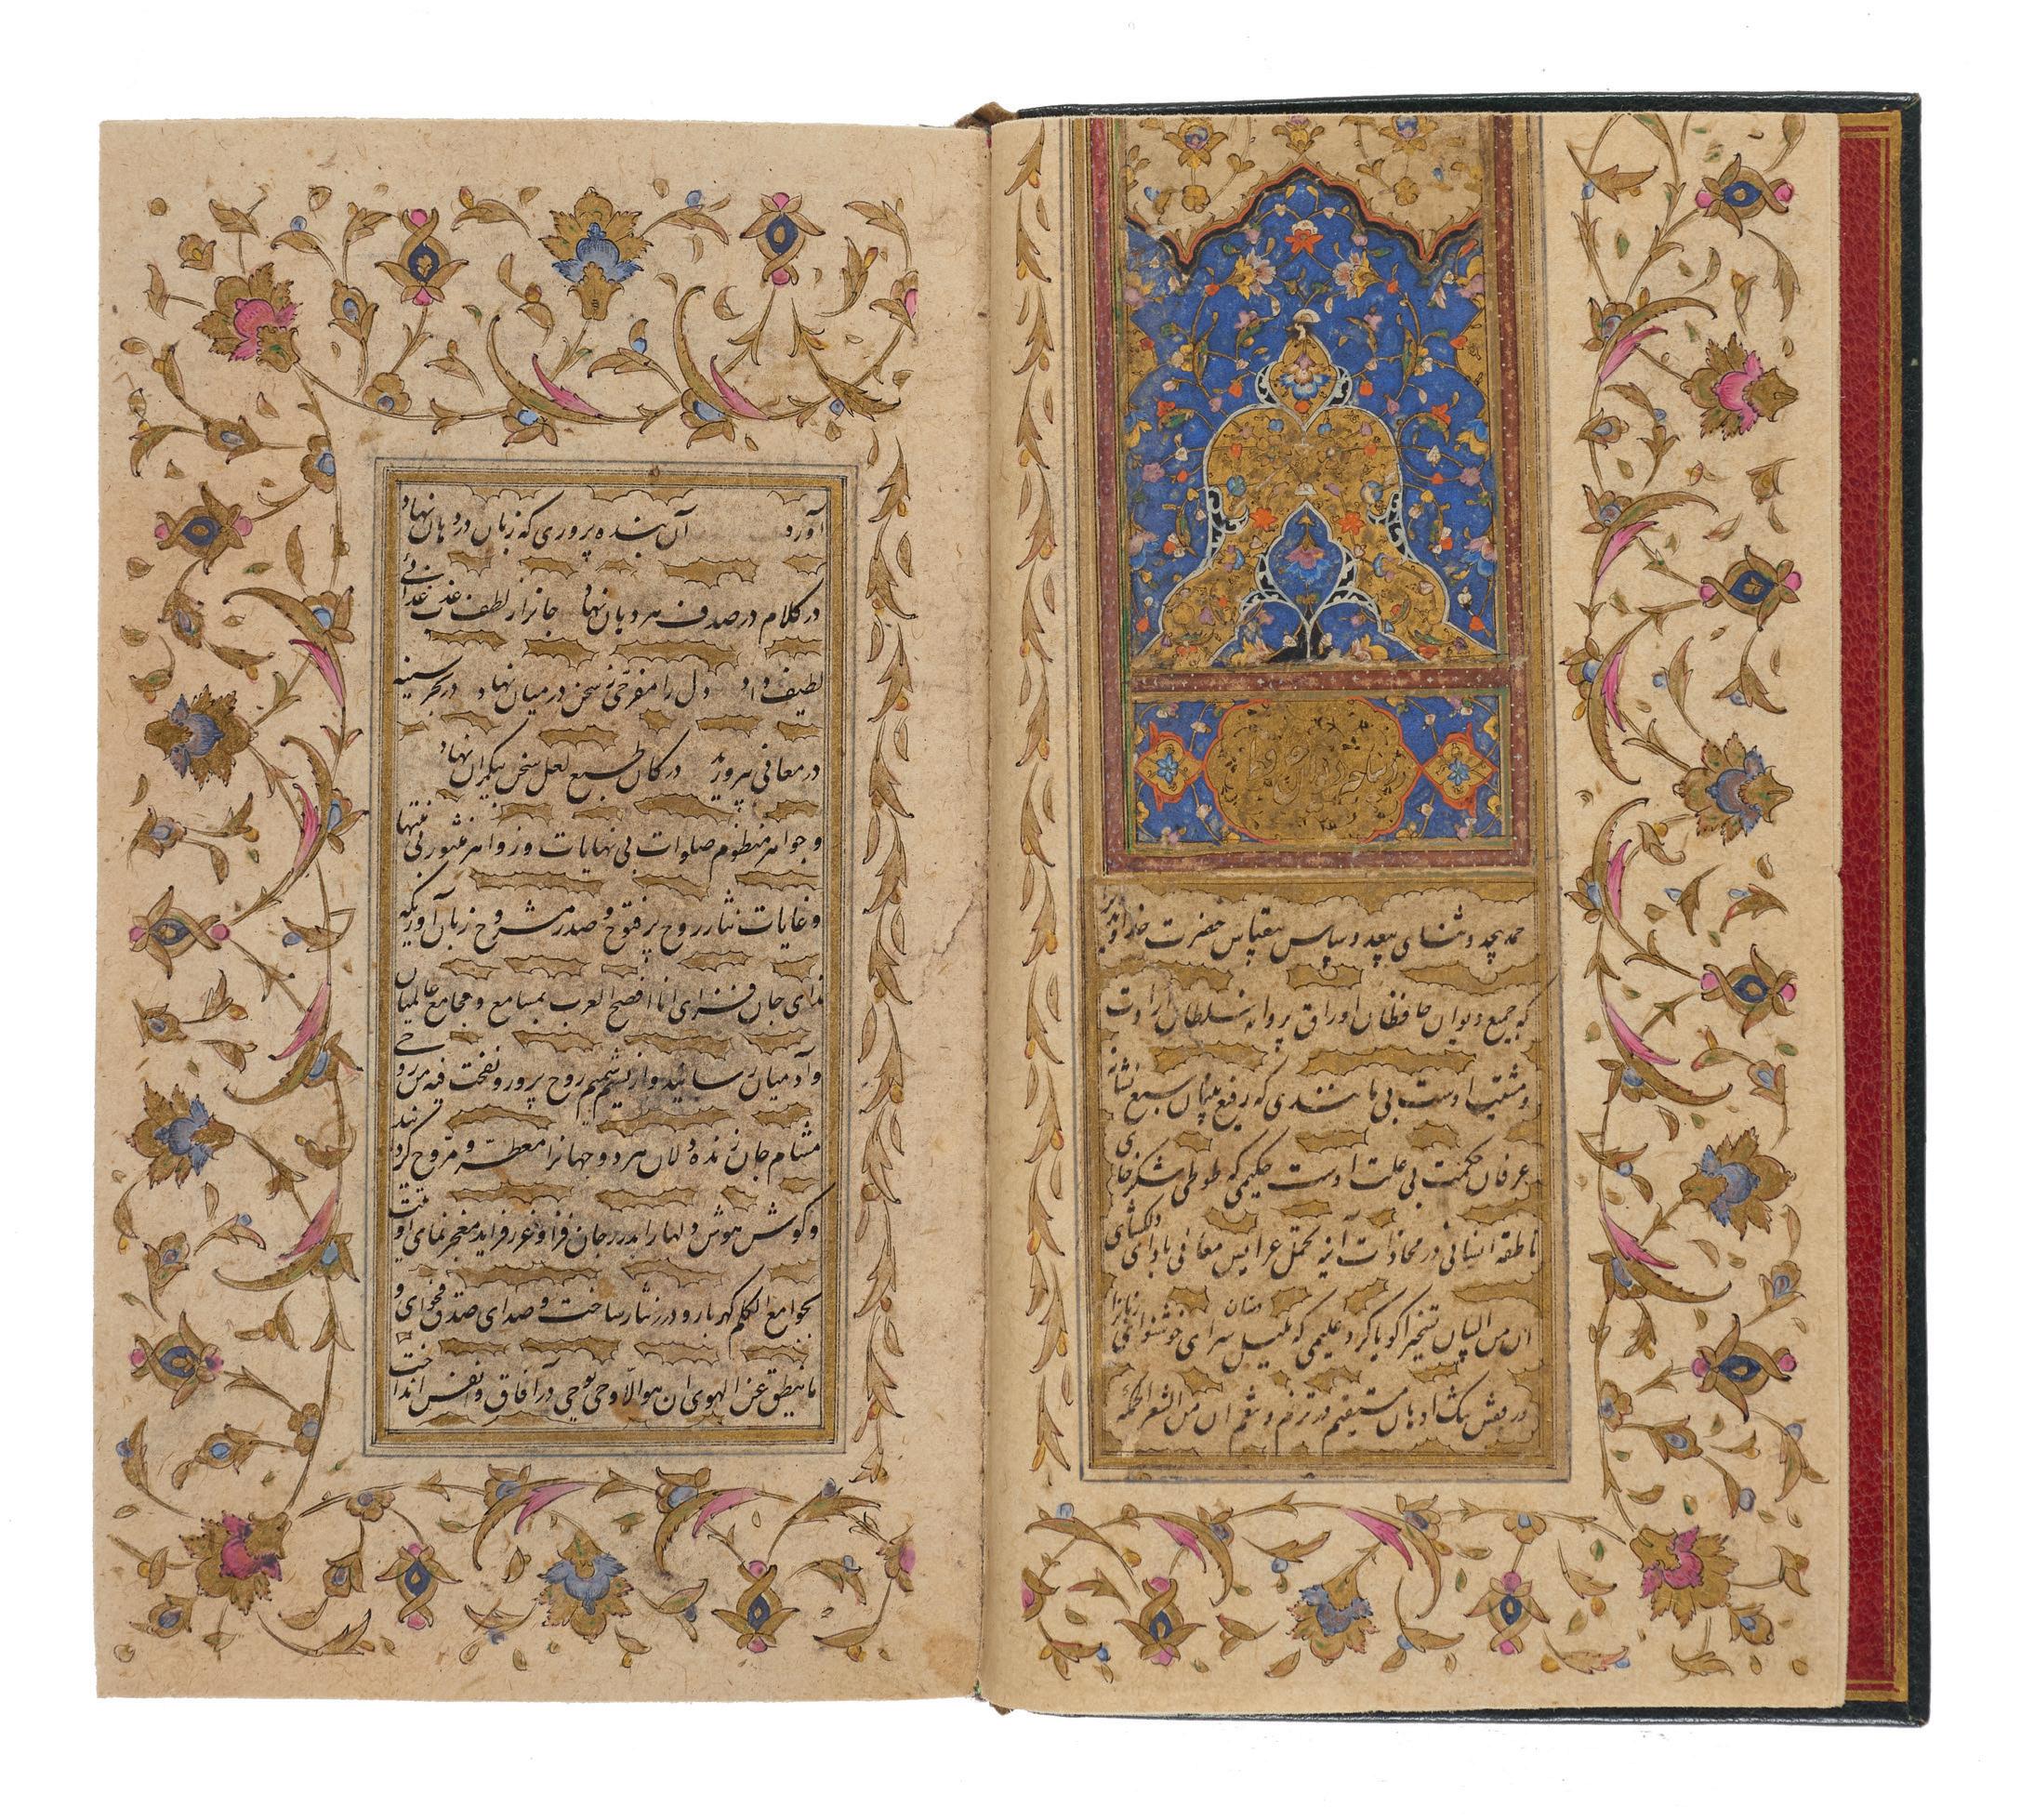 دیباجه دیوان حافظ
حمد بیحد و ثنای بیعد و سپاس بیقیاس حضرت خداوندیرا
که جمع دیوان حافظان اوراق پروانه سلطان ارادت
و مشیت اوست بی مانندی که رفع بنیان سبع
عرفان حکمت بی علت اوست حکیمی که طوطی شکرخای
ناطقه انسانی در محاذات آینه تخیل عرایس معانی بادای دلگشای
ان من البیان لسحرا گویا کرد علیمی که بلبل دستان سرای خوشنوای زبانرا
در قفس تنگ دهان مستقیم در ترنم و تنعم ان من الشعر لحکمة
آورد آن بنده پروری که زبان در دهان نهاد
در کلام در صدف هر دهان نهاد جانرا ز لطف غذائی
لطیف داد دل را مفرحی ز سخن در میان نهاد در بحر سینه
در معانی بپرورید در کان طبع لعل سخن بیکران نهاد
و جواهر منظوم صلوات بی نهایات و زواهر منثور بی منتها
و غایات نثار روح پر فتوح و صدر مشروح زبان آوریکه
ندای جان فزای انا افصح العرب بمسامع و مجامع عالمیان
و آدمیان رسانید و از نسیم شمیم روح پرور و نفخت فیه من روحی
مشام جان زنده دلان هر دو جهانرا معطر و مروح گردانید
و گوش هوش دلها را بدرر جان فزا و غرر فراید معجز نمای اوتیت
بجوامع الکلم گهربار و درر نثار ساخت و صدای صدق و فحوای و
ما ینطق عن الهوی ان هو الا وحی یوحی در آفاق و انفس انداخت